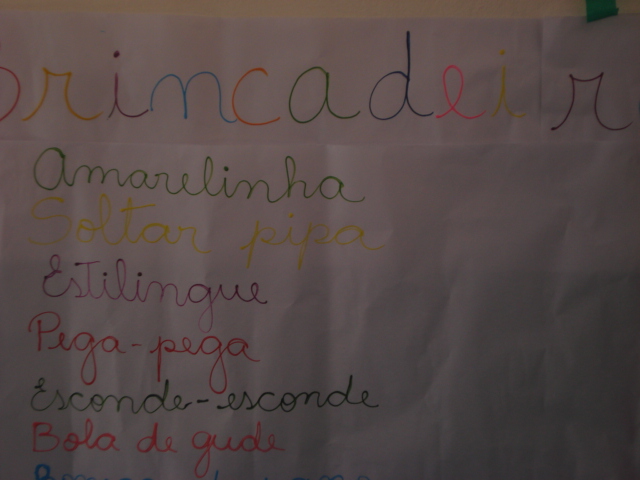 Brincadeir
Amarelinha
Soltar pipa
Estilingue
Pega-pega
Esconde-esconde
Bola de gude